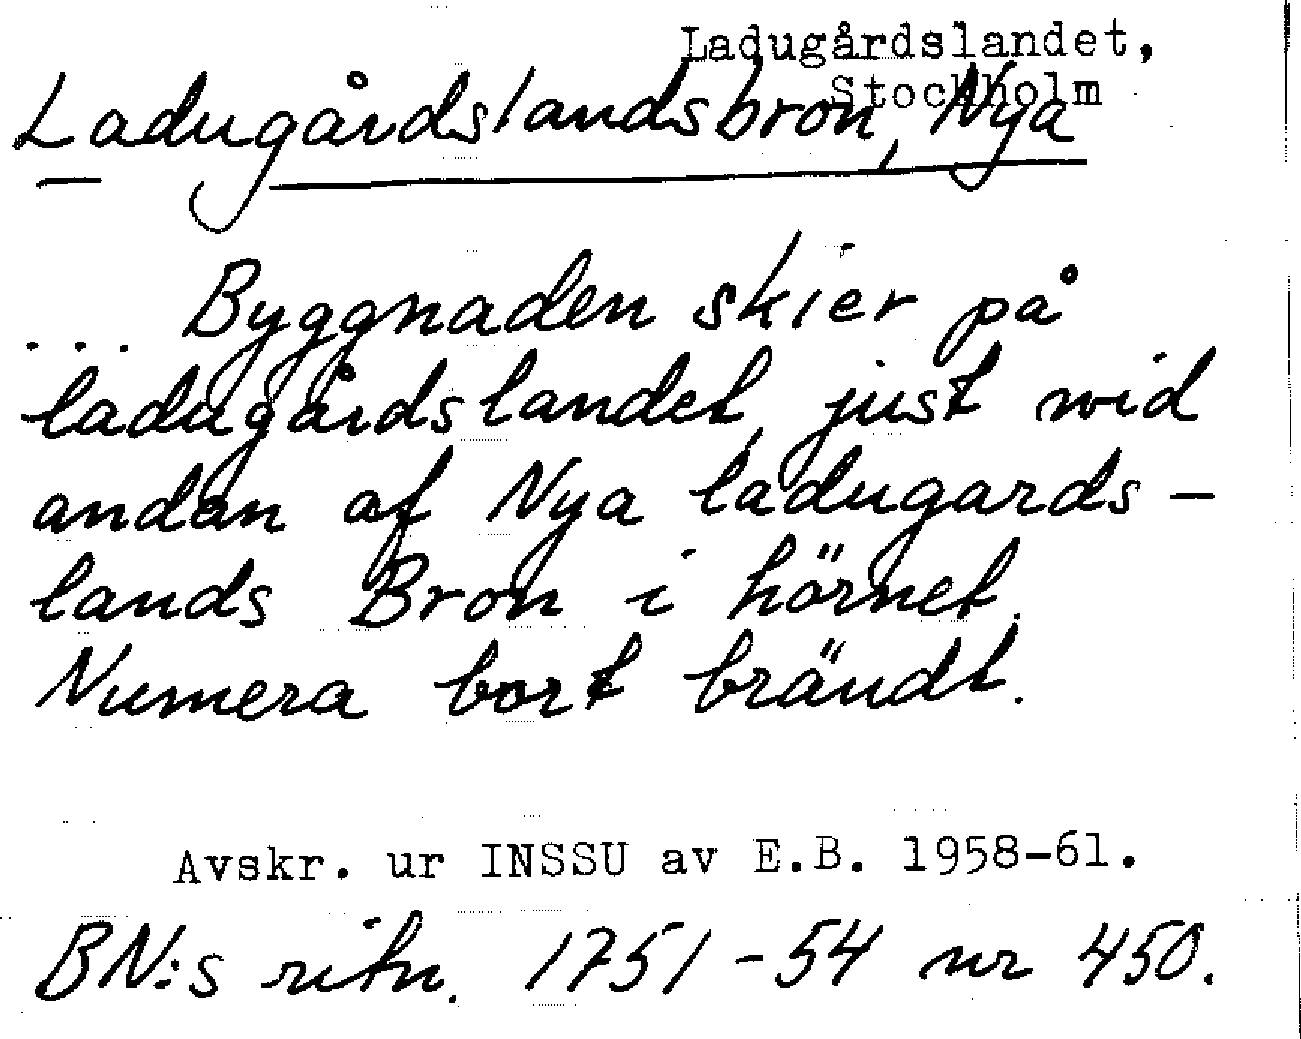 Ladugårdslandet,
Stockholm
Ladugårdslandsbron, Nya
... Byggnaden skier på
ladugårdslandet, just wid
andan af Nya ladugards-
lands Bron i hörnet.
Numera bort brändt.
Avskr. ur INSSU av E.B. 1958-61.
BN:s ritn. 1751-54 nr 450.